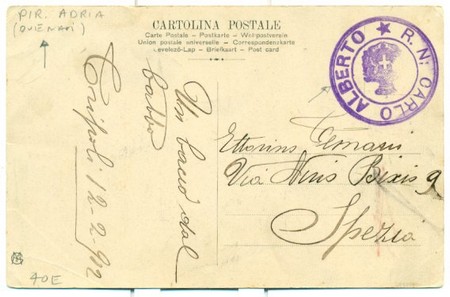 PIR. ADRIA
CARTOLINA POSTALE
Carte Postale - Postkarte - Weltpostverein
Union postale universelle - Correspondenzkarte
Levelező-Lap - Briefkaart - Post card
R. N: CARLO ALBERTO
Un bacio dal
babbo
Tripoli 12-2-912
Ettorino
Via Nino Bixio 9
Spezia
40E